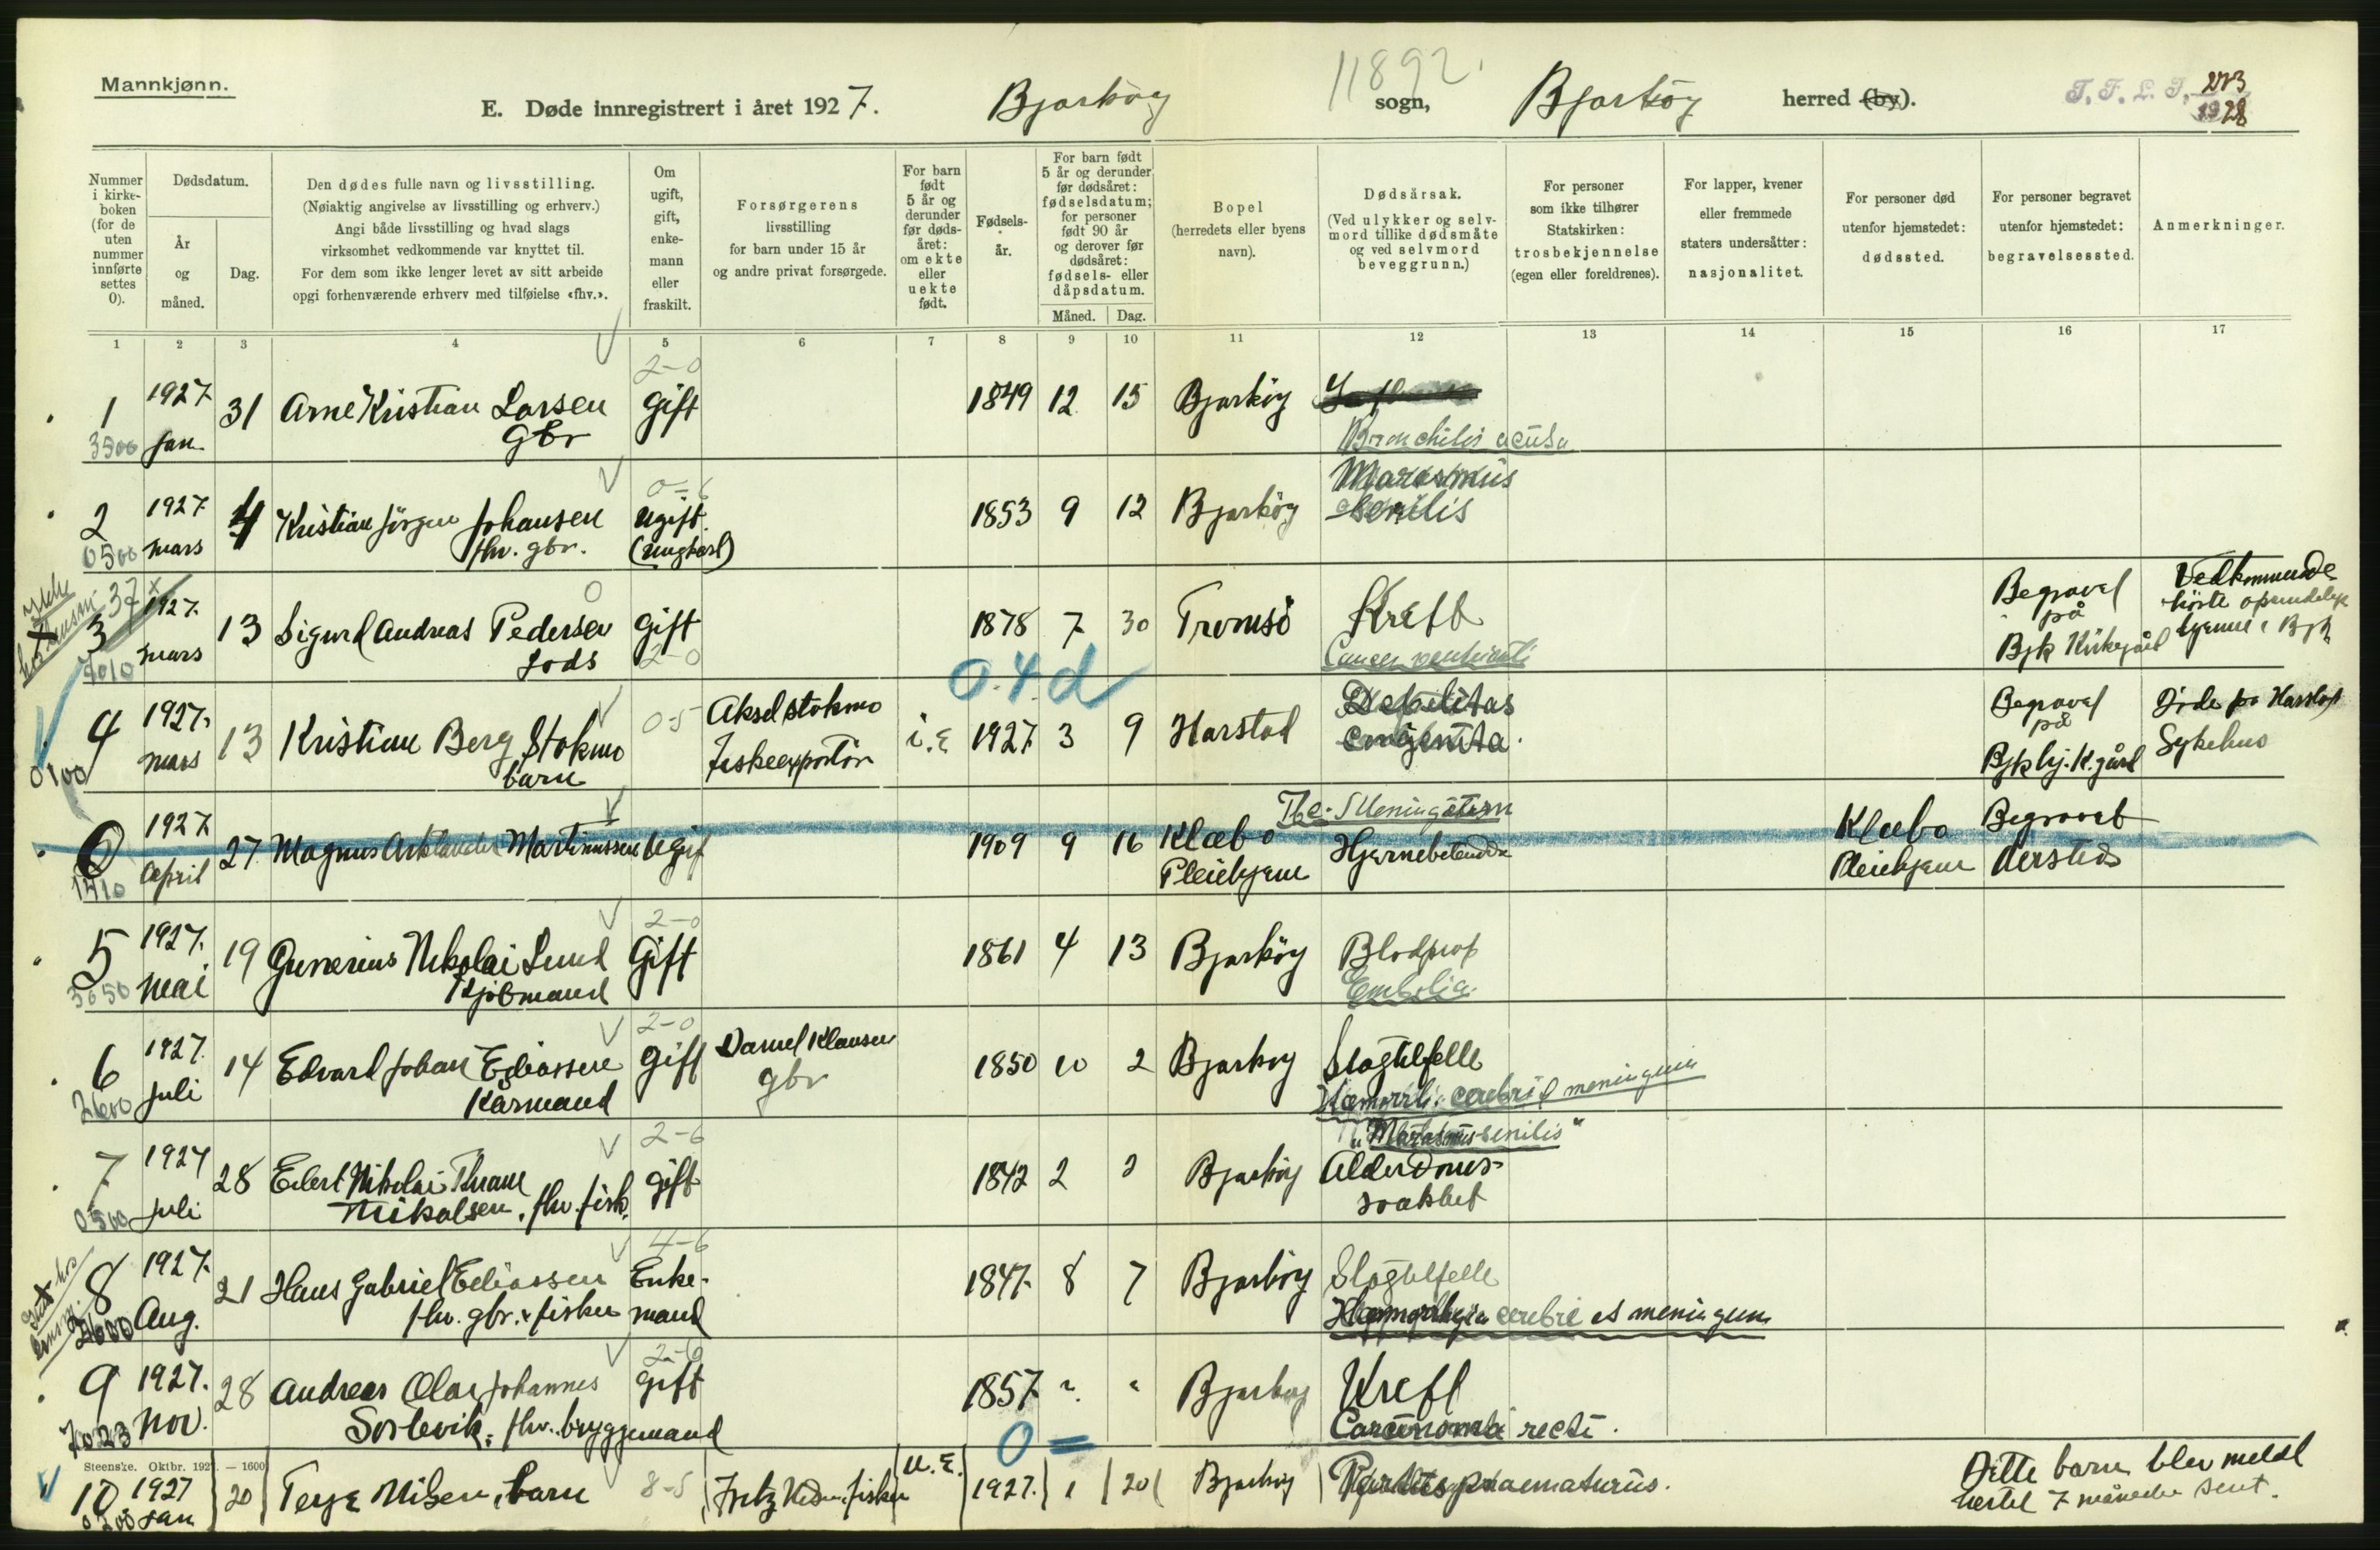 Mannkjønn.
11892.
E. Døde innregistrert i året 1927. Bjarköy sogn, Bjarköy herred (by).
T. F. L. T. 273
1928
Nummer i kirke-boken (for de uten nummer innførte settes 0).
Dødsdatum.
År og måned.
Dag.
Den dødes fulle navn og livsstilling.
(Nøiaktig angivelse av livsstilling og erhverv.)
Angi både livsstilling og hvad slags
virksomhet vedkommende var knyttet til.
For dem som ikke lenger levet av sitt arbeide
opgi forhenværende erhverv med tilføielse «fhv.».
Om ugift, gift, enke-mann eller fraskilt.
Forsørgerens
livsstilling
for barn under 15 år
og andre privat forsørgede.
For barn født 5 år og derunder før døds-året: om ekte eller uekte født.
Fødsels-år.
For barn født 5 år og derunder før dødsåret: fødselsdatum; for personer født 90 år og derover før dødsåret: fødsels- eller dåpsdatum.
Måned. Dag.
Bopel
(herredets eller byens
navn).
Dødsårsak.
(Ved ulykker og selv-
mord tillike dødsmåte
og ved selvmord
beveggrunn.)
For personer
som ikke tilhører
Statskirken:
trosbekjennelse
(egen eller foreldrenes).
For lapper, kvener
eller fremmede
staters undersåtter:
nasjonalitet.
For personer død
utenfor hjemstedet:
dødssted.
For personer begravet
utenfor hjemstedet:
begravelsessted.
Anmerkninger.
1 2 3 4 5 6 7 8 9 10 11 12 13 14 15 16 17
2-0
1 1927 jan 31 Arne Kristian Larsen Gbr Gift 1849 12 15 Bjarköy
3500 Bronchitis acuta
2 1927 mars 4 Kristian Jörgen Johansen fhv. gbr. Ugift (ungkarl) 1853 9 12 Bjarköy Marasmus senilis
0500
3 1927 mars 13 Sigurd Andreas Pedersen Gift 1878 7 30 Tromsö Kreft
2-0 Cancer ventriculi
Begravet på Bjk Kirkegård
Vedkommende hörte oprindelig hjemme i Bjk
0.4.d
4 1927 mars 13 Kristian Berg Stokmo barn 0-5 Aksel Stokmo Fiskeexportör i.E 1927 3 9 Harstad Debilitas congenita.
0100
Begravet på Bjk hj. K.gård
Döde på Harstad Sykehus
0 1927 April 27 Magnus Martinussen Ugift 1909 9 16 Klæbo Pleiehjem Hjernebetendelse
Klæbo Pleiehjem Begravet dersteds
2-0
5 1927. Mai 19 Gunerius Nikolai Lund Kjöbmand Gift 1861 4 13 Bjarköy Blodprop
Embolia
2-0
6 1927. juli 14 Edvard Johan Eliassen Kårmand Gift Daniel Klausen gbr 1850 10 2 Bjarköy Slagtilfelle
2600 Hæmorrh. cerebri & meningum
2-6
"Marasmus senilis"
7 1927 juli 28 Edert Nikolai Thrane Nikolaisen, fhv. fisk. gift 1842 2 2 Bjarköy Alderdoms-
svakhet
0500
4-6
8 1927. Aug. 21 Hans Gabriel Eliassen fhv. gbr. & fisker Enke-mand 1847. 8 7 Bjarköy Slagtilfelle
2600 Hæmorrhagia cerebri et meningum
9 1927. Nov. 28 Andreas Olai Johannes Sörlevik, fhv. bryggemand Gift 1857 " " Bjarköy Kreft
Carcinoma recti.
0
Steenske. Oktbr. 192 . — 1600
10 1927 jan 20 Terje Nilsen, barn 8-5 Fritz Nilsen, fisker U.E. 1927. 1 20 Bjarköy Partus praematurus.
Dette barn blev meldt
hertil 7 måneder sent.